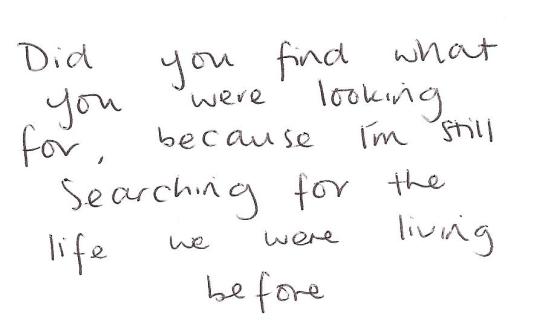 Did you find what
you were looking
for, because I'm still
Searching for the
life we were living
before